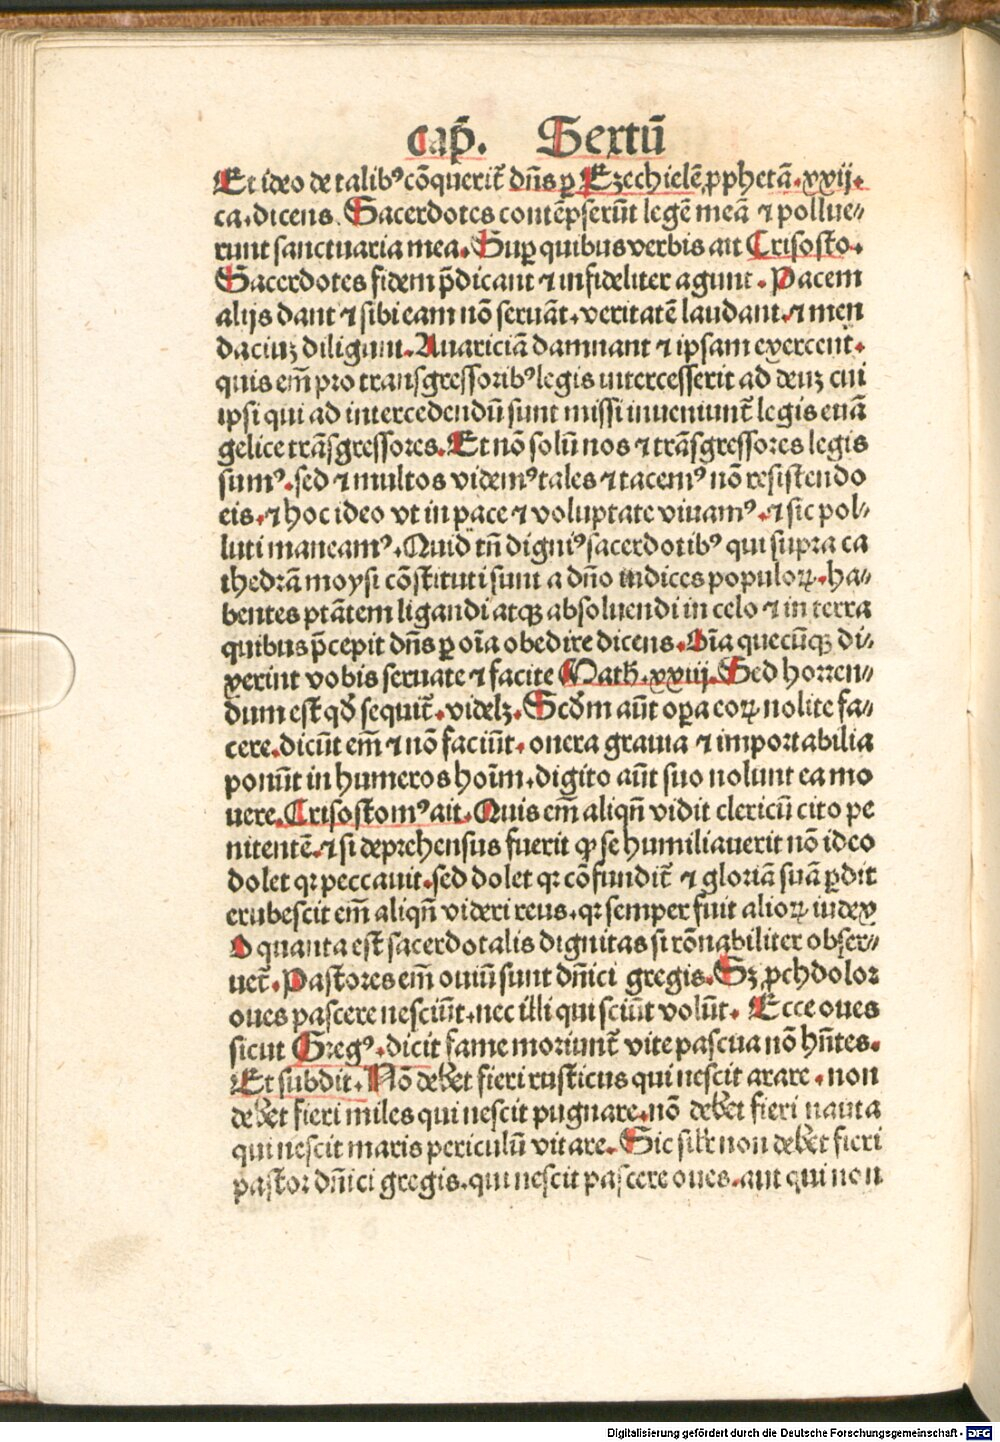 cap̄. Sextū
Et ideo de talibꝰ cōquerit̃ dn̄s ꝑ Ezechielē ꝓphetā. xxij.
ca. dicens. Sacerdotes contēpserūt legē meā ⁊ pollue⸗
runt sanctuaria mea. Suꝑ quibus verbis ait Crisosto.
Sacerdotes fidem p̄dicant ⁊ infideliter agunt. Pacem
alijs dant ⁊ sibi eam nō seruāt. veritatē laudant. ⁊ men
daciuꝫ diligunt. Auariciā damnant ⁊ ipsam exercent.
quis em̄ pro transgressoribꝰ legis intercesserit ad deuꝫ cui
ipsi qui ad intercedendū sunt missi inueniunt̃ legis euā
gelice trāsgressores. Et nō solū nos ⁊ trāsgressores legis
sumꝰ. sed ⁊ multos videmꝰ tales ⁊ tacemꝰ nō resistendo
eis. ⁊ hoc ideo vt in pace ⁊ voluptate viuamꝰ. ⁊ sic pol⸗
luti maneamꝰ. Quid tn̄ digniꝰ sacerdotibꝰ qui supra ca
thedrā moysi cōstituti sunt a dn̄o iudices populoꝝ. ha⸗
bentes ptātem ligandi atqꝫ absoluendi in celo ⁊ in terra
quibus p̄cepit dn̄s ꝑ oīa obedire dicens. Oīa quecūqꝫ di⸗
xerint vobis seruate ⁊ facite Math̄. xxiij. Sed horren⸗
dum est qd̄ sequit̃. videlꝫ. Scd̄m aūt oꝑa eoꝝ nolite fa⸗
cere. dicūt em̄ ⁊ nō faciūt. onera grauia ⁊ importabilia
ponūt in humeros hoīm. digito aūt suo nolunt ea mo
uere. Crisostomꝰ ait. Quis em̄ aliqn̄ vidit clericū cito pe
nitentē. ⁊ si deprehensus fuerit ꝙ se humiliauerit nō ideo
dolet qꝛ peccauit. sed dolet qꝛ cōfundit̃ ⁊ gloriā suā ꝑdit
erubescit em̄ aliqn̄ videri reus. qꝛ semper fuit alioꝝ iudex
O quanta est sacerdotalis dignitas si rōnabiliter obser⸗
uet̃. Pastores em̄ ouiū sunt dn̄ici gregis. Sꝫ ꝓchdolor
oues pascere nesciūt. nec illi qui sciūt volūt. Ecce oues
sicut Gregꝰ. dicit fame moriunt̃ vite pascua nō hn̄tes.
Et subdit. Nō debet fieri rusticus qui nescit arare. non
debet fieri miles qui nescit pugnare. nō debet fieri nauta
qui nescit maris periculū vitare. Sic silr̄ non debet fieri
pastor dn̄ici gregis. qui nescit pascere oues. aut qui non
Digitalisierung gefördert durch die Deutsche Forschungsgemeinschaft - DFG